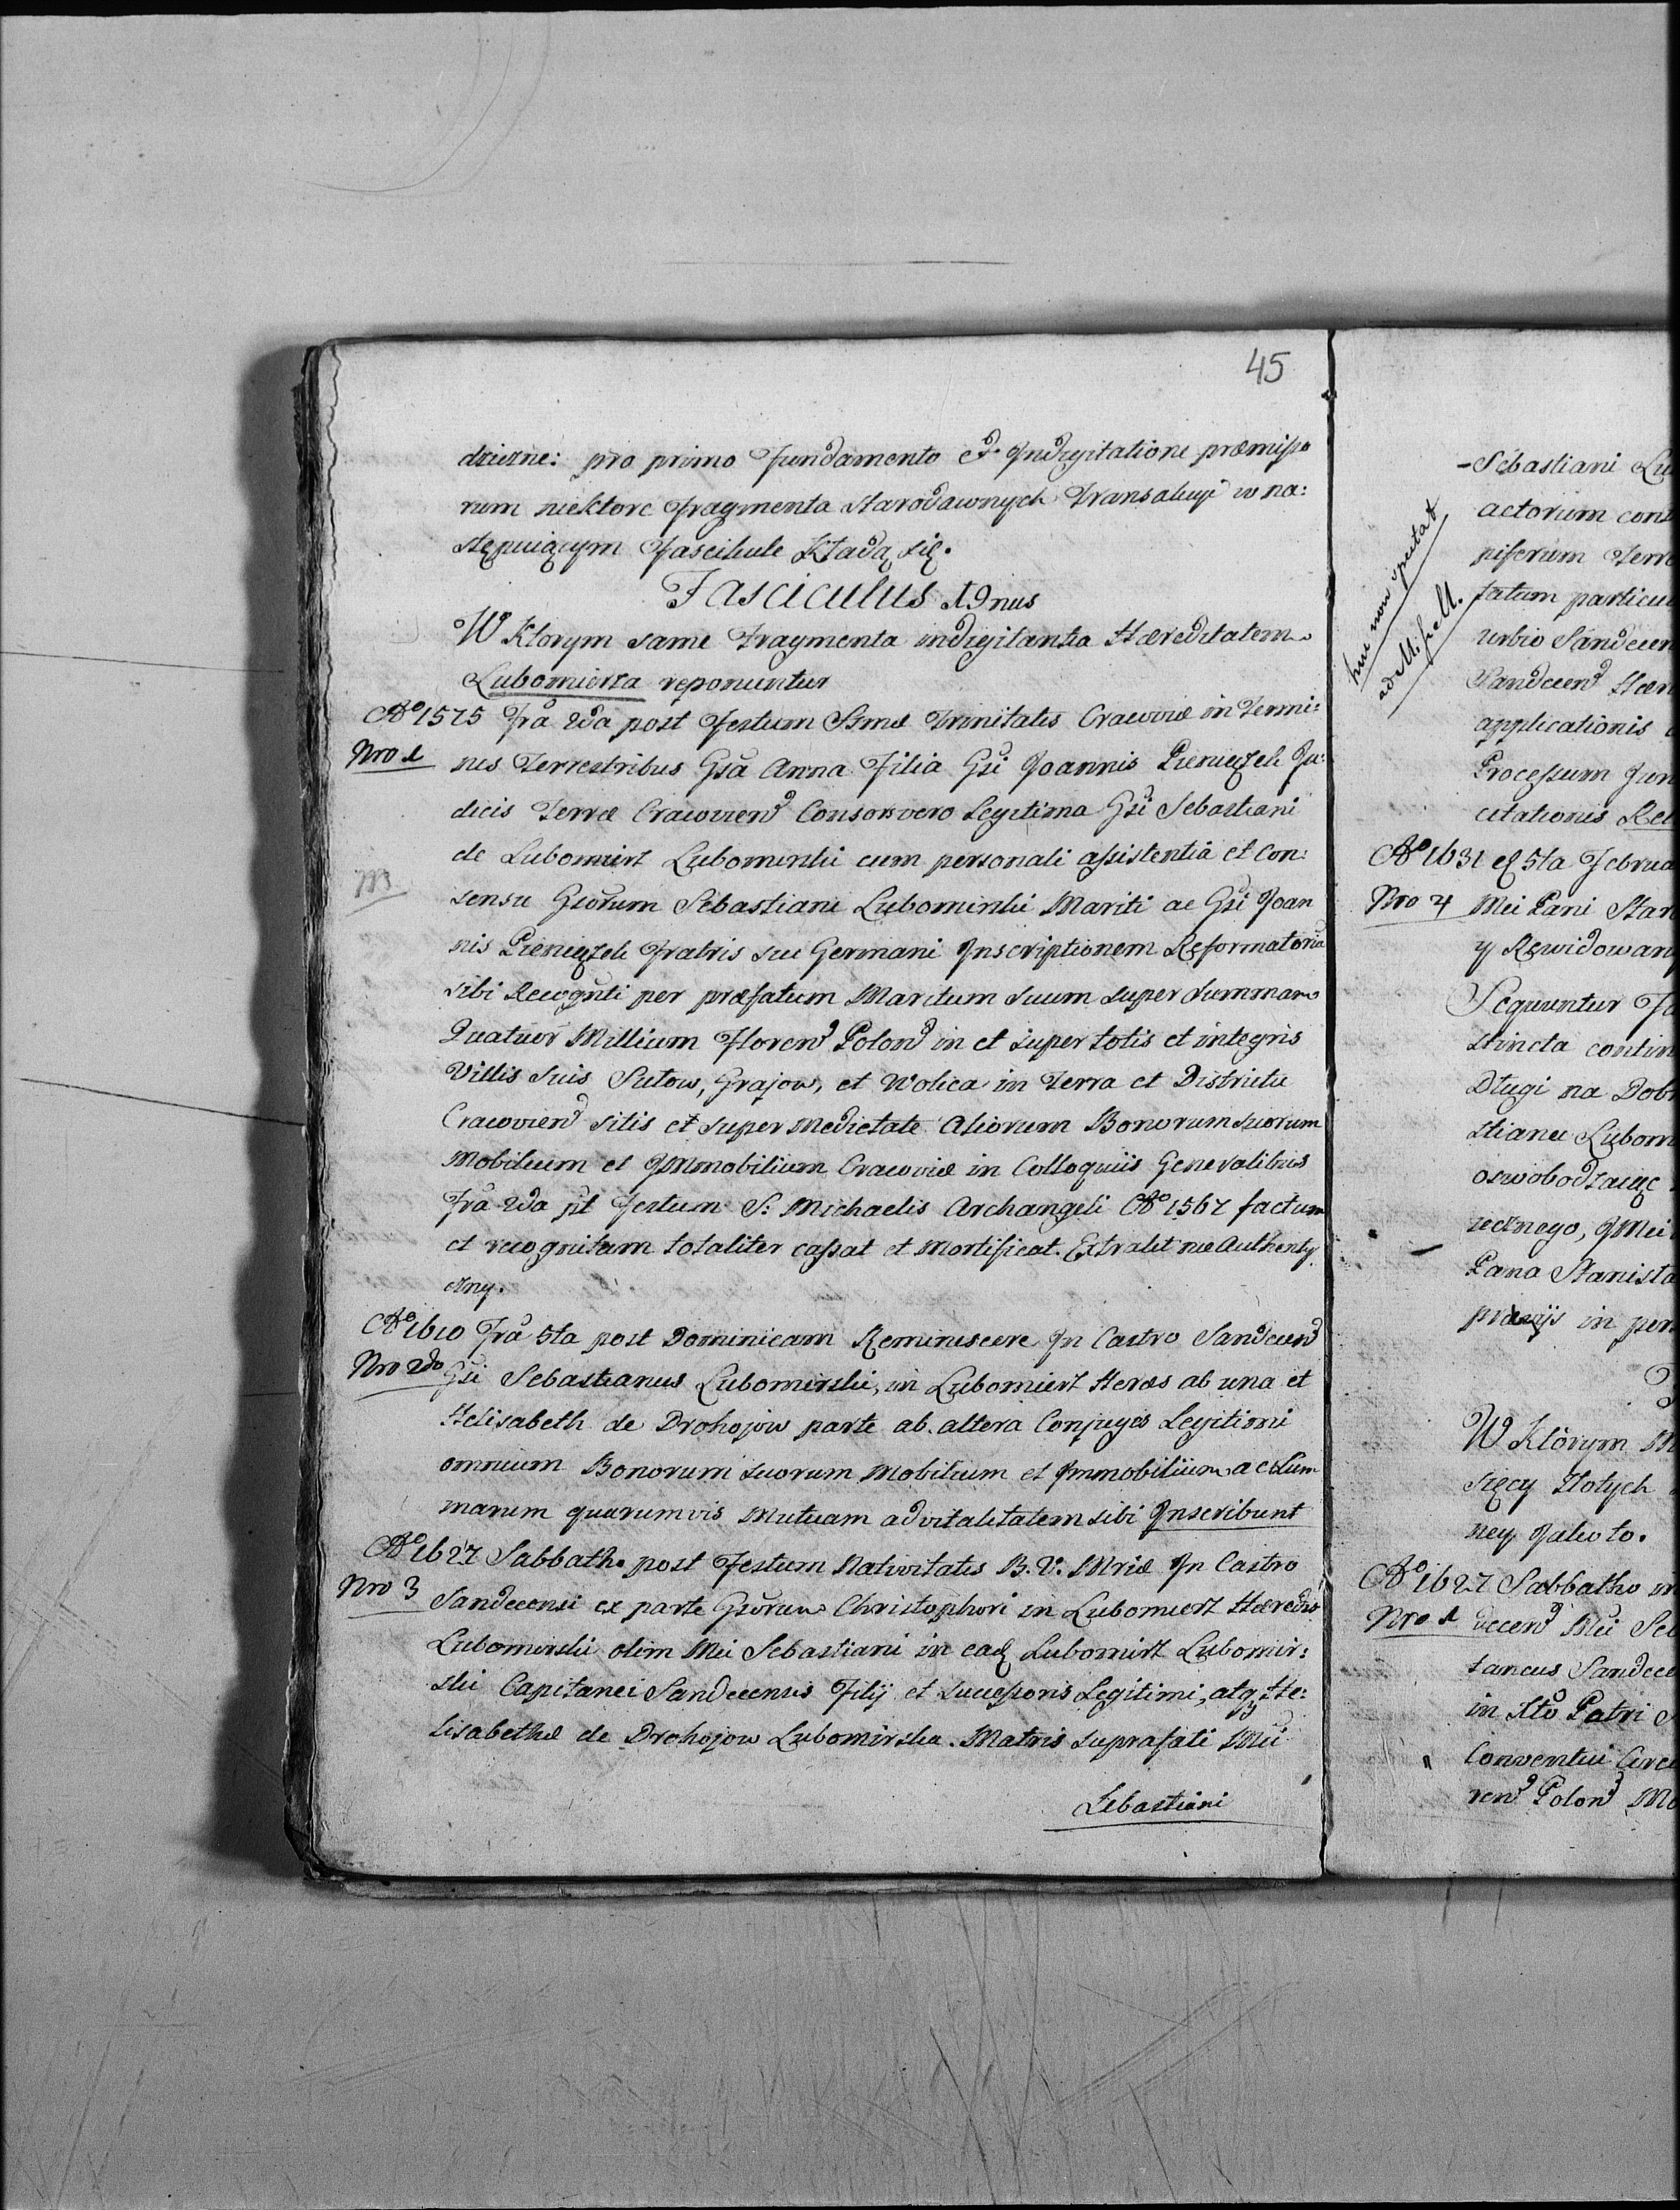 45
dzizne: pro primo Fundamento et Indigitatione præmisso
rum niektore Fragmenta Starodawnych Transakcyi w na:
stępuiącym Fascikule Kładą się.
Fasciculus 19nus
W Ktorym same Fragmenta indigitantia Hæreditatem
Lubomierza reponuntur
Aº 1575 Fra 2da post Festum SSmæ Trinitatis Cracoviæ in Termi:
Nro 1 nis Terrestribus Gsa Anna Filia Gsi Joannis Pieniążek Ju:
dicis Terræ Cracovien Consors vero Legitima Gsi Sebastiani
de Lubomirz Lubomirski cum personali assistentia et Con:
NB
sensu Gsorum Sebastiani Lubomirski Mariti ac Gsi Joan
nis Pieniążek Fratris sui Germani Inscriptionem Reformatoria
sibi Recogniti per præfatum Maritum suum super Summam
Quatuor Millium Floren Polon in et super totis et integris
Villis suis Sutow, Grajow, et Wolica in Terra et Districtu
Cracovien sitis et super Medietate Aliorum Bonorum suorum
Mobilium et Immobilium Cracoviæ in Colloquiis Generalibus
Fra 2da pt Festum S: Michaelis Archangeli Aº 1567 factum
et recognitum totaliter cassat et Mortificat. Extrakt nie Authenty
czny.
Aº 1610 Fra 5ta post Dominicam Reminiscere In Castro Sandecen
Nro 2do Gsi Sebastianus Lubomirski, in Lubomierz Heres ab una et
Helisabeth de Drohojow parte ab altera Conjuges Legitimi
omnium Bonorum suorum Mobilium et Immobilium ac Sum
marum quarumvis Mutuam advitalitatem sibi Inscribunt
Aº 1627 Sabbatho post Festum Nativitatis B. V. Mriæ In Castro
Nro 3 Sandecensi ex parte Gsorum Christophori in Lubomierz Hæredis
Lubomirski olim Mci Sebastiani in eadę Lubomirz Lubomir:
ski Capitanei Sandecensis Filij et Successoris Legitimi, atq He:
lisabethæ de Drohojow Lubomirska Matris suprafati Mci
Sebastiani
- Sebastiani Lu
actorum cont
piferum Terre
huc non spectat
ad M. [...]
tatum particu
urbio Sandecen
Sandecen Hær
applicationis
Processum Jur
citationis Rel
Aº 1631 5ta Februa
Nro 4 Mci Pani Star
y Rewidowan
Sequuntur F
stincta contin
Długi na Dobr
stiana Lubom
oswobodzaiąc
recznego, JMci
Pana Stanisła
præviis in per
W Ktorym M
sięcy Złotych
ney Jako to.
Aº 1627 Sabbatho in
Nro 1 decen Mci Se
taneus Sandece
in Xto Patri
Conventui Cra
ren Polon M